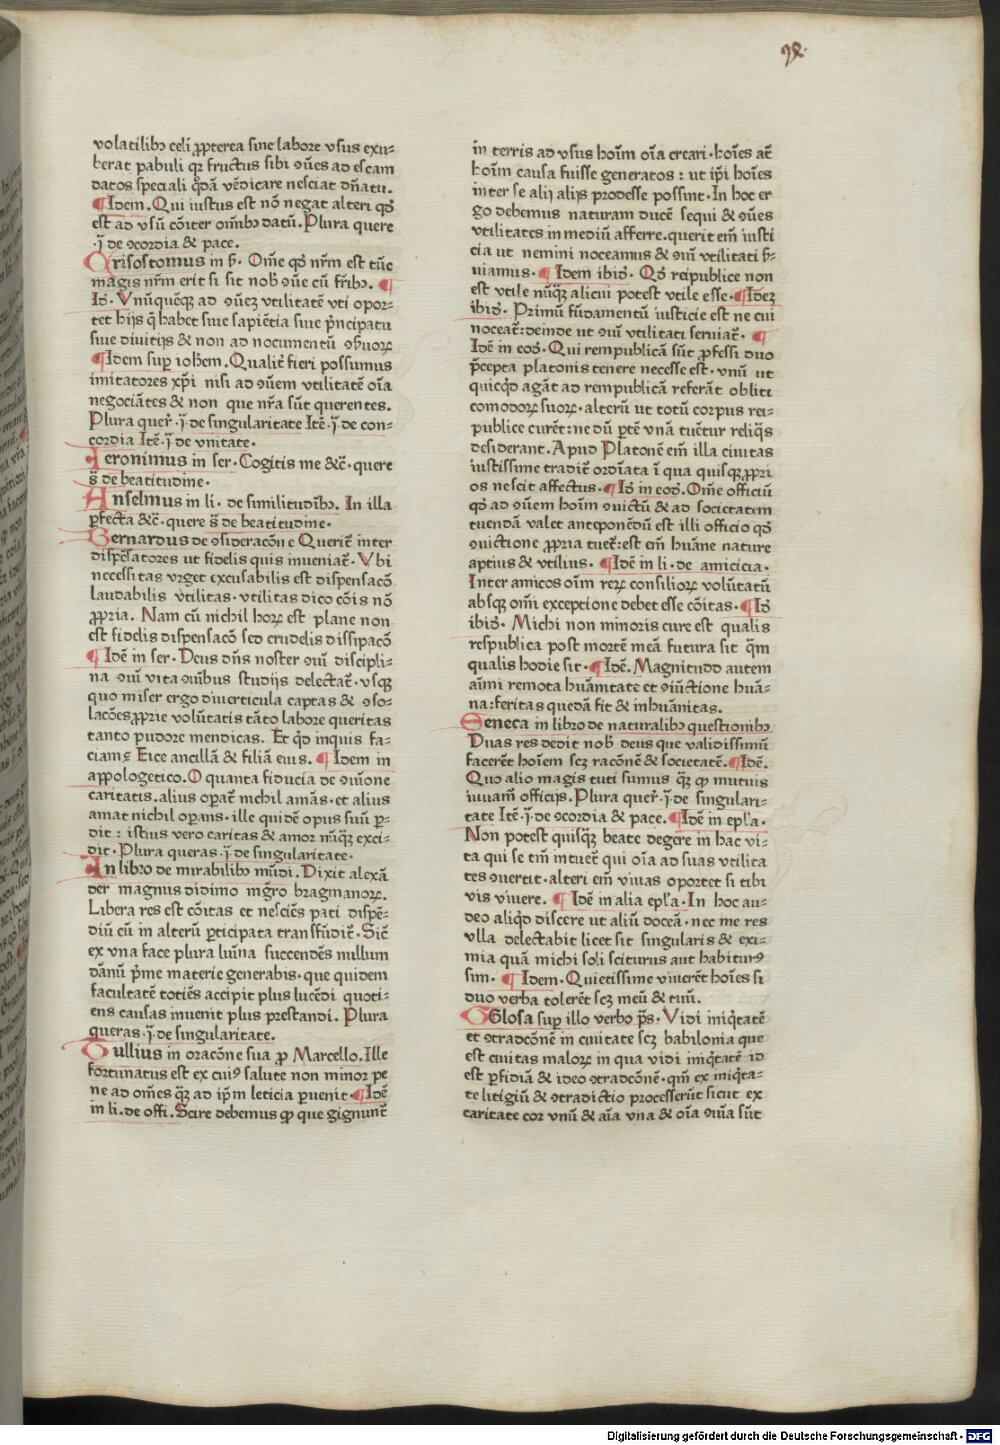 volatilibꝫ celi ꝓpterea sine labore vsus exu-
berat pabuli qꝛ fructus sibi ꝯ̄ues ad escam
datos speciali q̄dā vēdicare nesciat dn̄atu.
¶Idem. Qui iustus est nō negat alteri qd̕
est ad vsū cōiter om̄ibꝫ datū. Plura quere
.j̄ de ꝯcordia & pace.
Crisostomus in ẜ. Om̄e qd̕ nr̄m est tūc
magis nr̄m erit si sit nob̕ ꝯ̄ue cū fr̄ibꝫ. ¶
Id̕. Vnūquēqꝫ ad ꝯ̄ueꝫ vtilitatē vti opor-
tet hijs q̄ habet siue sapiētia siue p̄ncipatu
siue diuitijs & non ad nocumentū ꝯẜuoꝝ
¶Idem suꝑ iohēm. Qualit̄ fieri possumus
imitatores xp̄i nisi ad ꝯ̄uem vtilitatē oīa
negociātes & non que nr̄a sūt querentes.
Plura quer̄ .j̄ de singularitate Itē .j̄ de con-
cordia Itē .j̄ de vnitate.
Ieronimus in ser. Cogitis me &c̄. quere
s̄ de beatitudine.
Anselmus in li. de similitudībꝫ. In illa
ꝑfecta &c̄. quere s̄ de beatitudine.
Bernardus de ꝯsideracōne Querit̄ inter
dispēsatores ut fidelis quis inueniat̄. Vbi
necessitas vrget excusabilis est dispensacō
laudabilis vtilitas. vtilitas dico cōis nō
ꝓpria. Nam cū nichil hoꝝ est plane non
est fidelis dispensacō sed crudelis dissipacō
¶Idē in ser. Deus dn̄s noster ꝯ̄ui discipli-
na ꝯ̄ui vita ꝯ̄uibus studijs delectat̄. vsqꝫ
quo miser ergo diuerticula captas & ꝯso-
lacōes ꝓprie volūtatis tāto labore queritas
tanto pudore mendicas. Et qd̕ inquis fa-
ciam? Eice ancillā & filiā eius. ¶Idem in
appologetico. O quanta fiducia de ꝯ̄uione
caritatis. alius oꝑat̄ nichil amās. et alius
amat nichil oꝑans. ille quidē opus suū ꝑ-
dit : istius vero caritas & amor nūqꝫ exci-
dit. Plura queras .j̄ de singularitate.
In libro de mirabilibꝫ mūdi. Dixit alexā
der magnus didimo mḡro bragmanoꝝ.
Libera res est cōitas et nesciēs pati dispē-
diū cū in alterū ꝑticipata transfūdit̄. Sic̄
ex vna face plura luīna succendēs nullum
dānū p̄me materie generabis. que quidem
facultatē totiēs accipit plus lucēdi quoti-
ens causas inuenit plus prestandi. Plura
queras .j̄ de singularitate.
Tullius in oracōne sua ꝓ Marcello. Ille
fortunatus est ex cuiꝰ salute non minor pe
ne ad om̄es q̄ꝫ ad ip̄m leticia ꝑuenit. ¶Idē
in li. de offi. Scire debemus ꝙ que gignunt̄
in terris ad vsus hoīm oīa creari. hoīes at̄
hoīm causa fuisse generatos : ut ip̄i hoīes
inter se alij alijs prodesse possint. In hoc er
go debemus naturam ducē sequi & ꝯ̄ues
vtilitates in mediū afferre. querit em̄ iusti
cia ut nemini noceamus & ꝯ̄ui vtilitati ẜ-
uiamus. ¶Idem ibid̕. Qd̕ reipublice non
est vtile nūq̄ꝫ alicui potest vtile esse. ¶Ideꝫ
ibid̕. Primū fūdamentū iusticie est ne cui
noceat̄: deinde ut ꝯ̄ui vtilitati seruiat̄. ¶
Idē in eod̕. Qui rempublicā sūt ꝓfessi duo
p̄cepta platonis tenere necesse est. vnū ut
quicqd̕ agāt ad rempublicā referāt obliti
comodoꝝ suoꝝ. alterū ut totū corpus rei-
publice curēt: ne dū ꝑtē vnā tuētur reliqs̄
desiderant. Apud Platonē em̄ illa ciuitas
iustissime tradit̄ ordīata ī qua quisqꝫ ꝓpri
os nescit affectus. ¶Id̕ in eod̕. Om̄e officiū
qd̕ ad ꝯ̄uem hoīm ꝯuictū & ad societatem
tuendā valet anteponēdū est illi officio qd̕
ꝯuictione ꝓpria tuet̄: est em̄ huāne nature
aptius & vtilius. ¶Idē in li. de amicicia.
Inter amicos oīm reꝝ consilioꝝ volūtatū
absqꝫ om̄i exceptione debet esse cōitas. ¶Id̕
ibid̕. Michi non minoris cure est qualis
respublica post mortē meā futura sit q̄m
qualis hodie sit. ¶Idē. Magnitudo autem
aīmi remota huāitate et ꝯiūctione huā-
na: feritas quedā fit & inhuānitas.
Seneca in libro de naturalibꝫ questionibꝫ
Duas res dedit nob̕ deus que validissimū
facerēt hoīem scꝫ racōnē & societatē. ¶Idē.
Quo alio magis tuti sumus q̄ꝫ ꝙ mutuis
iuuam̄ officijs. Plura quer̄ .j̄ de singulari-
tate Itē .j̄ de ꝯcordia & pace. ¶Idē in epl̄a.
Non potest quisq̄ꝫ beate degere in hac vi-
ta qui se tm̄ intuet̄ qui oīa ad suas vtilita
tes ꝯuertit. alteri em̄ viuas oportet si tibi
vis viuere. ¶Idē in alia epl̄a. In hoc au-
deo aliqd̕ discere ut aliū doceā. nec me res
vlla delectabit licet sit singularis & exi-
mia quā michi soli sciturus aut habiturꝰ
sim. ¶Idem. Quietissime viuerēt hoīes si
duo verba tolerēt scꝫ meū & tuū.
Glosa suꝑ illo verbo p̄s. Vidi iniq̄tatē
et ꝯtradcōnē in ciuitate scꝫ babilonia que
est ciuitas maloꝝ in qua vidi iniq̄tatē id
est ꝑfidiā & ideo ꝯtradcōnē. qm̄ ex iniq̄ta-
te litigiū & ꝯtradictio processerūt sicut ex
caritate cor vnū & aīa vna & oīa ꝯ̄uia sūt
Digitalisierung gefördert durch die Deutsche Forschungsgemeinschaft - DFG